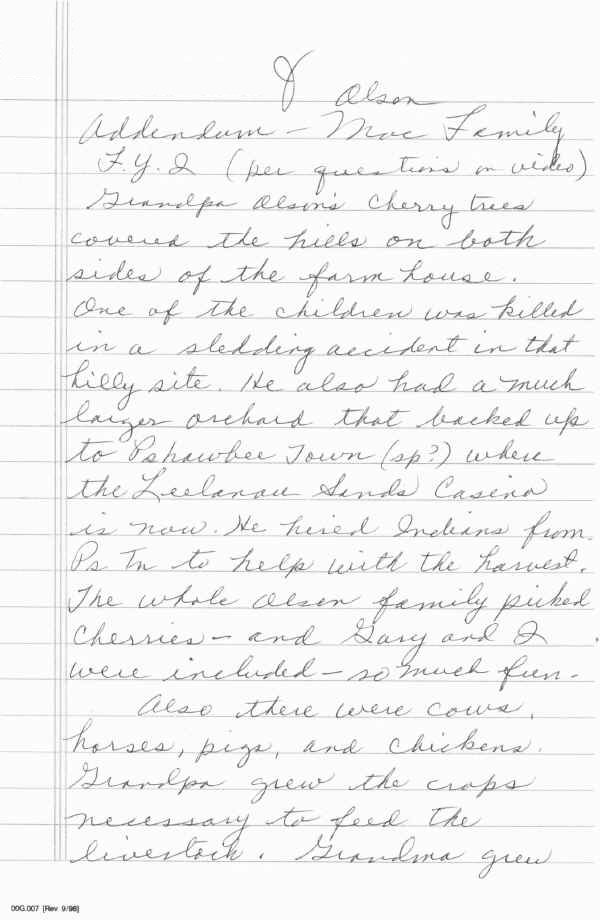 8 Olson
Addendum – Mac Family
F.Y.I (per questions on video)
Grandpa Olson's Cherry trees
covered the hills on both
sides of the farm house.
One of the children was killed
in a sledding accident in that
hilly site. He also had a much
larger orchard that backed up
to Pshawbee Town (sp?) where
the Leelanau Sands Casino
is now. He hired Indians from
Ps Tn to help with the harvest.
The whole Olsen family picked
Cherries – and Gary and I
were included – so much fun.
Also there were cows,
horses, pigs, and chickens.
Grandpa grew the crops
necessary to feed the
livestock. Grandma grew
00G.007 [Rev 9/98]